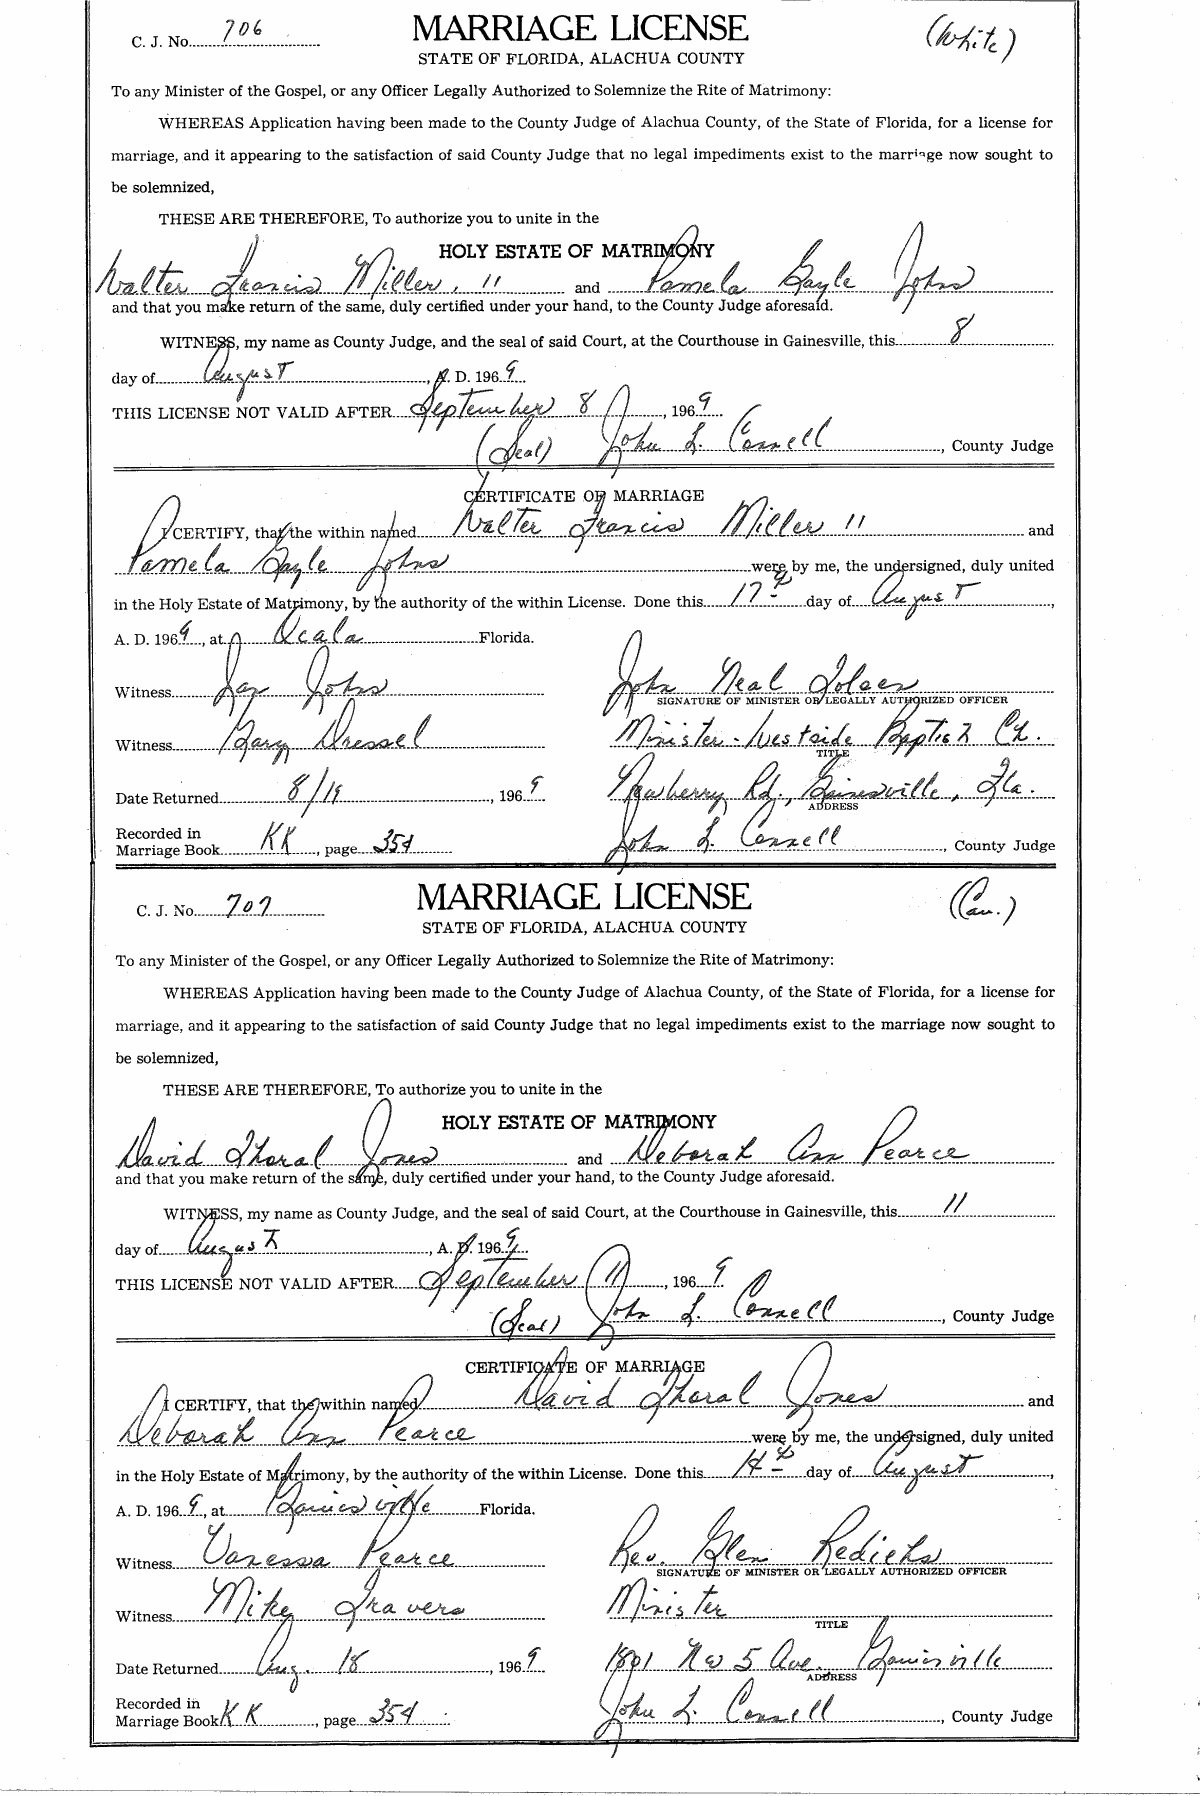 C. J. No. 706
MARRIAGE LICENSE
(White)
STATE OF FLORIDA, ALACHUA COUNTY
To any Minister of the Gospel, or any Officer Legally Authorized to Solemnize the Rite of Matrimony:
WHEREAS Application having been made to the County Judge of Alachua County, of the State of Florida, for a license for
marriage, and it appearing to the satisfaction of said County Judge that no legal impediments exist to the marriage now sought to
be solemnized,
THESE ARE THEREFORE, To authorize you to unite in the
HOLY ESTATE OF MATRIMONY
Walter Francis Miller, 11 and Pamela Gayle Johns
and that you make return of the same, duly certified under your hand, to the County Judge aforesaid.
WITNESS, my name as County Judge, and the seal of said Court, at the Courthouse in Gainesville, this 8
day of August, A. D. 1969
THIS LICENSE NOT VALID AFTER September 8, 1969
(Seal) John L. Connell, County Judge
CERTIFICATE OF MARRIAGE
I CERTIFY, that the within named Walter Francis Miller 11 and
Pamela Gayle Johns were by me, the undersigned, duly united
in the Holy Estate of Matrimony, by the authority of the within License. Done this 17th day of August,
A. D. 1969, at Ocala Florida.
Witness Jay Johns John Neal
SIGNATURE OF MINISTER OR LEGALLY AUTHORIZED OFFICER
Witness Gary Dressel Minister - Westside Baptist Ch.
TITLE
Date Returned 8/19, 1969 Newberry Rd., Gainesville, Fla.
ADDRESS
Recorded in
Marriage Book KK, page 354 John L. Connell, County Judge
C. J. No. 707
MARRIAGE LICENSE
(Cau.)
STATE OF FLORIDA, ALACHUA COUNTY
To any Minister of the Gospel, or any Officer Legally Authorized to Solemnize the Rite of Matrimony:
WHEREAS Application having been made to the County Judge of Alachua County, of the State of Florida, for a license for
marriage, and it appearing to the satisfaction of said County Judge that no legal impediments exist to the marriage now sought to
be solemnized,
THESE ARE THEREFORE, To authorize you to unite in the
HOLY ESTATE OF MATRIMONY
David Thoral Jones and Deborah Ann Pearce
and that you make return of the same, duly certified under your hand, to the County Judge aforesaid.
WITNESS, my name as County Judge, and the seal of said Court, at the Courthouse in Gainesville, this 11
day of August, A. D. 1969
THIS LICENSE NOT VALID AFTER September 11, 1969
(Seal) John L. Connell, County Judge
CERTIFICATE OF MARRIAGE
I CERTIFY, that the within named David Thoral Jones and
Deborah Ann Pearce were by me, the undersigned, duly united
in the Holy Estate of Matrimony, by the authority of the within License. Done this 14th day of August,
A. D. 1969, at Gainesville Florida.
Witness Vanessa Pearce Rev. Glen
SIGNATURE OF MINISTER OR LEGALLY AUTHORIZED OFFICER
Witness Mike Travers Minister
TITLE
Date Returned Aug. 18, 1969 1801 NW 5 Ave. Gainesville
ADDRESS
Recorded in
Marriage Book KK, page 354 John L. Connell, County Judge